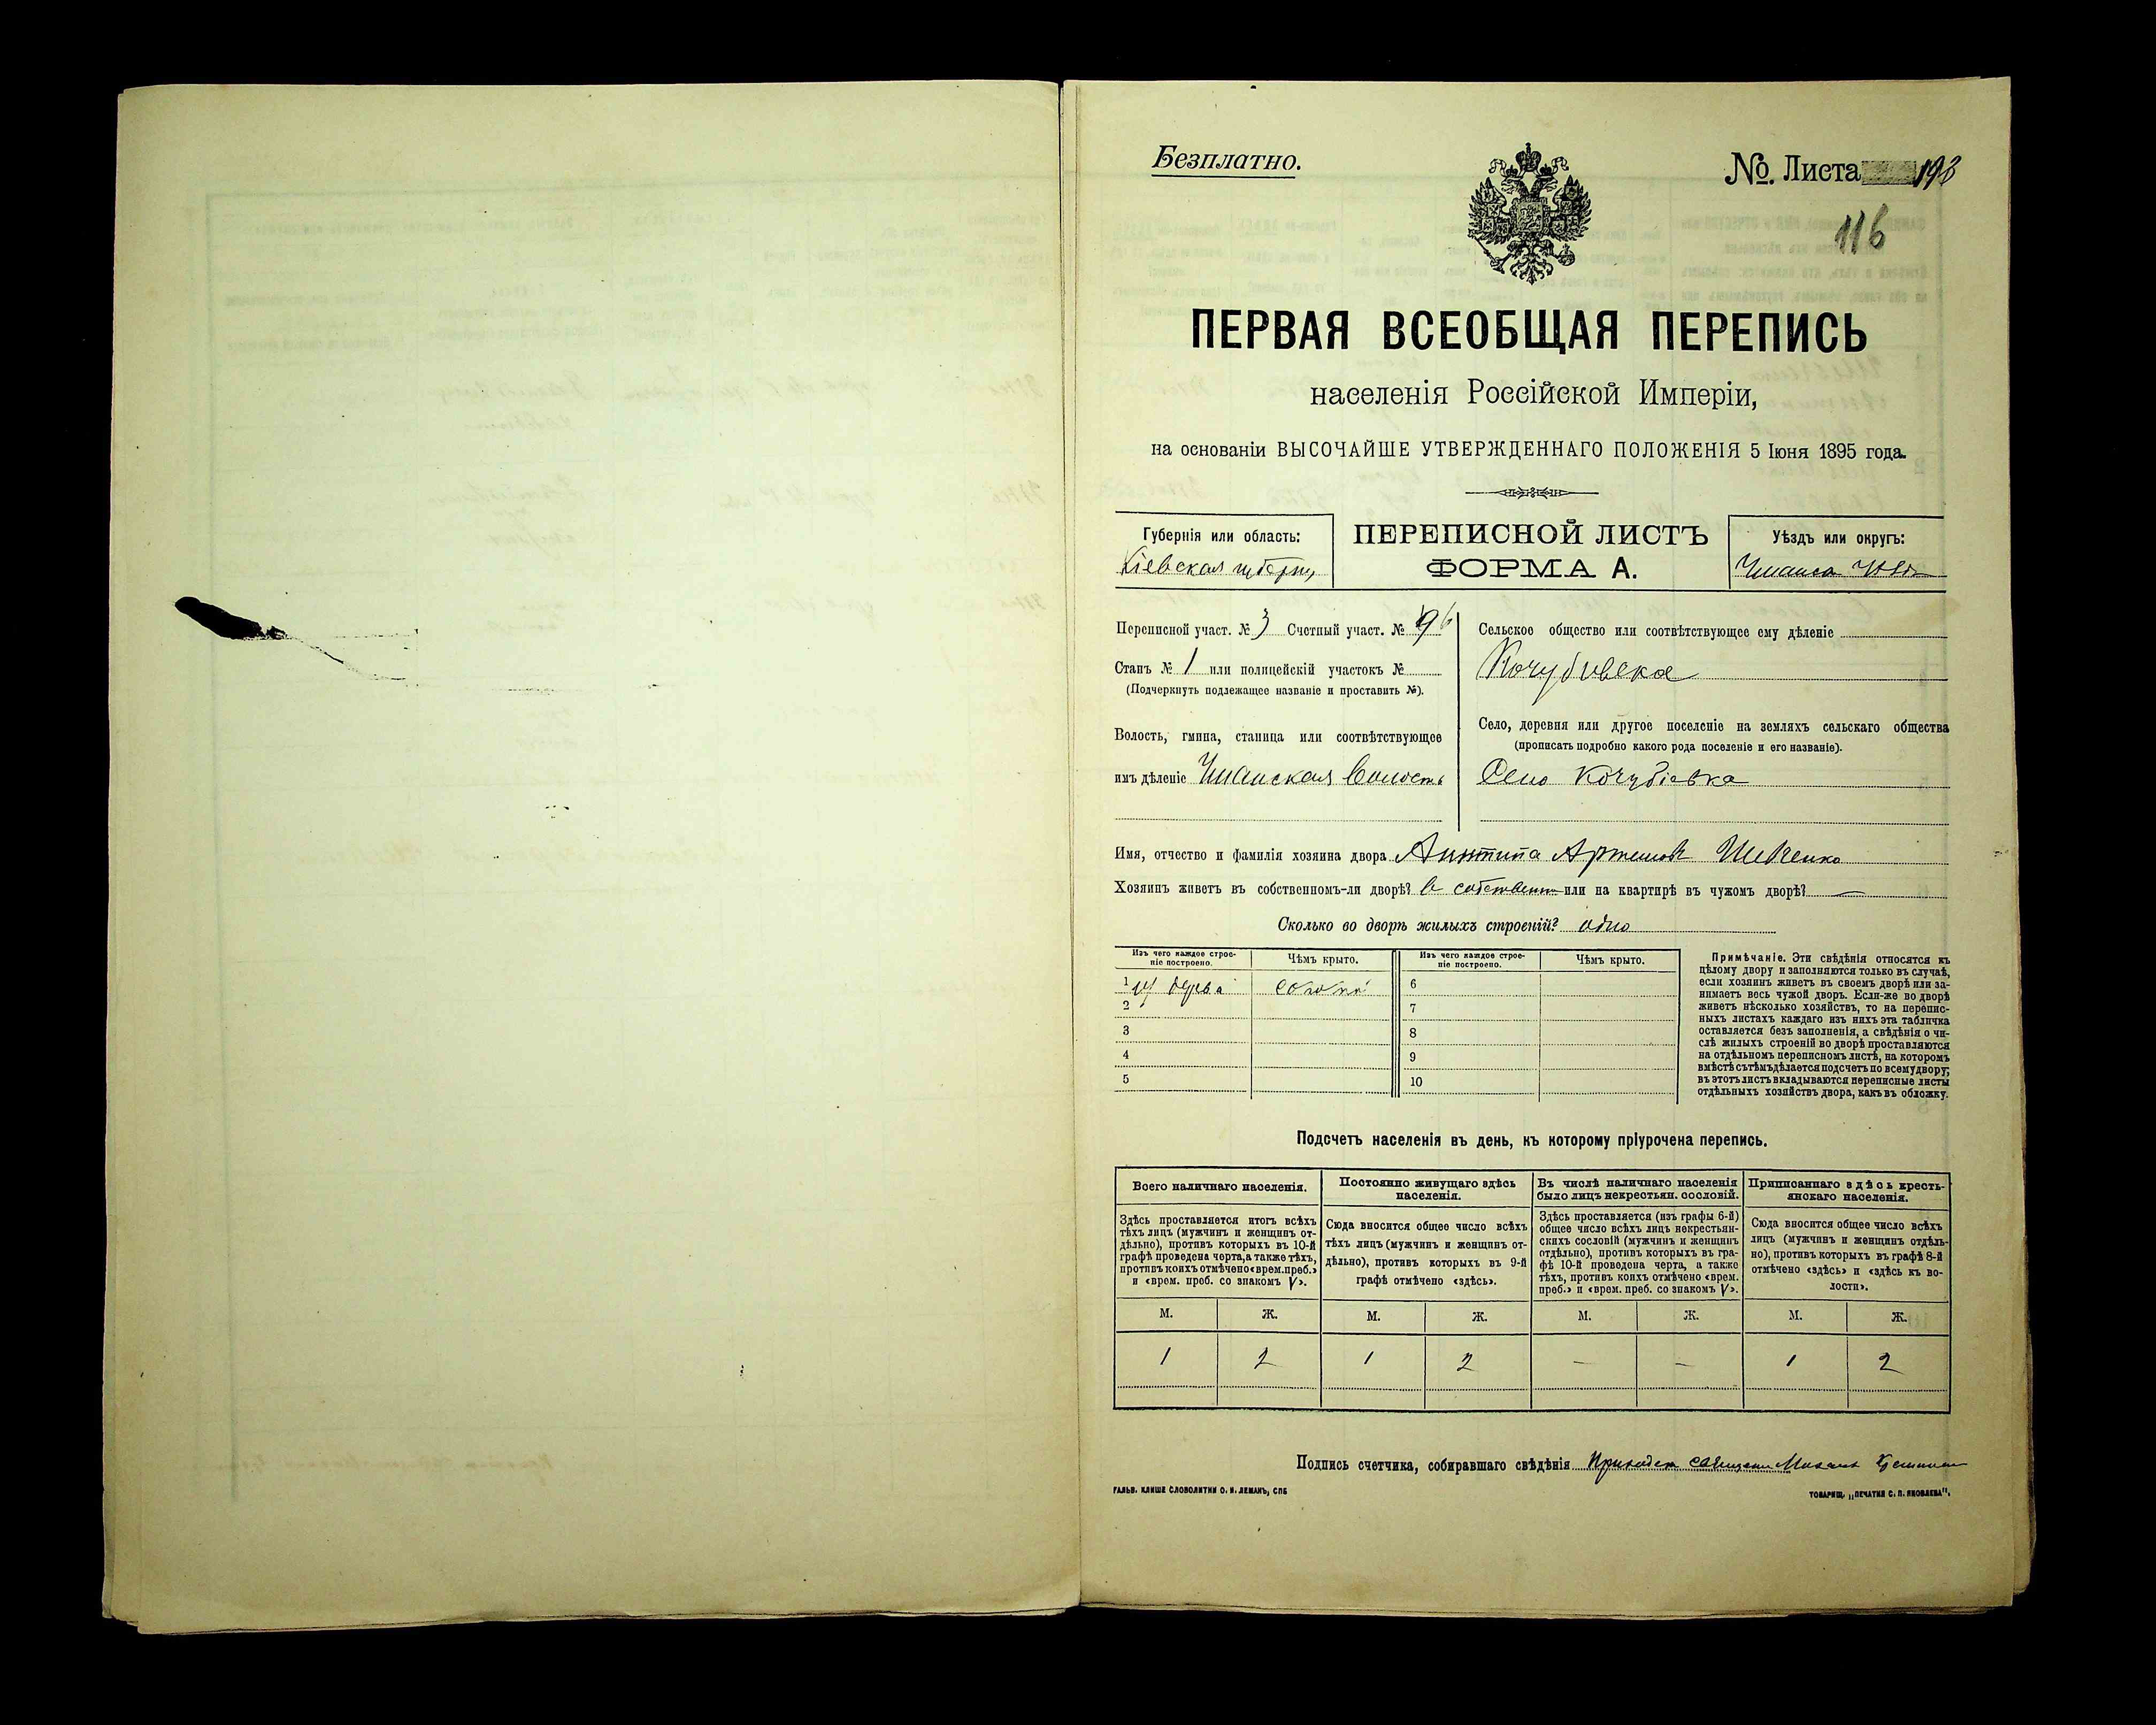 Безплатно.
№ Листа 193
116
ПЕРВАЯ ВСЕОБЩАЯ ПЕРЕПИСЬ
населенія Россійской Имперіи,
на основаніи ВЫСОЧАЙШЕ УТВЕРЖДЕННАГО ПОЛОЖЕНІЯ 5 Іюня 1895 года.
Губернія или область:
Кіевская губерн
ПЕРЕПИСНОЙ ЛИСТЪ
ФОРМА А.
Уѣздъ или округъ:
Переписной участ. № 3 Счетный участ. №
Станъ № 1 или полицейскій участокъ №
(Подчеркнуть подлежащее названіе и проставить №).
Волость, гмина, станица или соотвѣтствующее
имъ дѣленіе Уманская Волость
Сельское общество или соотвѣтствующее ему дѣленіе
Кочубивска
Село, деревня или другое поселеніе на земляхъ сельскаго общества
(прописать подробно какого рода поселеніе и его названіе).
Село Кочубіевка
Имя, отчество и фамилія хозяина двора Антипа Артемов Шевченко
Хозяинъ живетъ въ собственномъ-ли дворѣ? в собствен или на квартирѣ въ чужомъ дворѣ? —
Сколько во дворѣ жилыхъ строеній? одно
Изъ чего каждое строеніе построено.
Чѣмъ крыто.
Изъ чего каждое строеніе построено.
Чѣмъ крыто.
1 из дерва
6
2
7
3
8
4
9
5
10
Примѣчаніе. Эти свѣдѣнія относятся къ
цѣлому двору и заполняются только въ случаѣ,
если хозяинъ живетъ въ своемъ дворѣ или за-
нимаетъ весь чужой дворъ. Если-же во дворѣ
живетъ нѣсколько хозяйствъ, то на перепис-
ныхъ листахъ каждаго изъ нихъ эта табличка
оставляется безъ заполненія, а свѣдѣнія о чи-
слѣ жилыхъ строеній во дворѣ проставляются
на отдѣльномъ переписномъ листѣ, на которомъ
вмѣстѣ съ тѣмъ дѣлается подсчетъ по всему двору;
въ этотъ листъ вкладываются переписные листы
отдѣльныхъ хозяйствъ двора, какъ въ обложку.
Подсчетъ населенія въ день, къ которому пріурочена перепись.
Всего наличнаго населенія.
Здѣсь проставляется итогъ всѣхъ
тѣхъ лицъ (мужчинъ и женщинъ от-
дѣльно), противъ которыхъ въ 10-й
графѣ проведена черта, а также тѣхъ,
противъ коихъ отмѣчено «врем. преб.»
и «врем. преб. со знакомъ V».
Постоянно живущаго здѣсь
населенія.
Сюда вносится общее число всѣхъ
тѣхъ лицъ (мужчинъ и женщинъ от-
дѣльно), противъ которыхъ въ 9-й
графѣ отмѣчено «здѣсь».
Въ числѣ наличнаго населенія
было лицъ некрестьян. сословій.
Здѣсь проставляется (изъ графы 6-й)
общее число всѣхъ лицъ некрестьян-
скихъ сословій (мужчинъ и женщинъ
отдѣльно), противъ которыхъ въ гра-
фѣ 10-й проведена черта, а также
тѣхъ, противъ коихъ отмѣчено «врем.
преб.» и «врем. преб. со знакомъ V».
Приписаннаго здѣсь кресть-
янскаго населенія.
Сюда вносится общее число всѣхъ
лицъ (мужчинъ и женщинъ отдѣль-
но), противъ которыхъ въ графѣ 8-й
отмѣчено «здѣсь» и «здѣсь къ во-
лости».
М. Ж. М. Ж. М. Ж. М. Ж.
1 2 1 2 — — 1 2
Подпись счетчика, собиравшаго свѣдѣнія
ГАЛЬВ. КЛИШЕ СЛОВОЛИТНИ О. И. ЛЕМАНЪ, СПБ
ТОВАРИЩ. „ПЕЧАТНЯ С. П. ЯКОВЛЕВА".